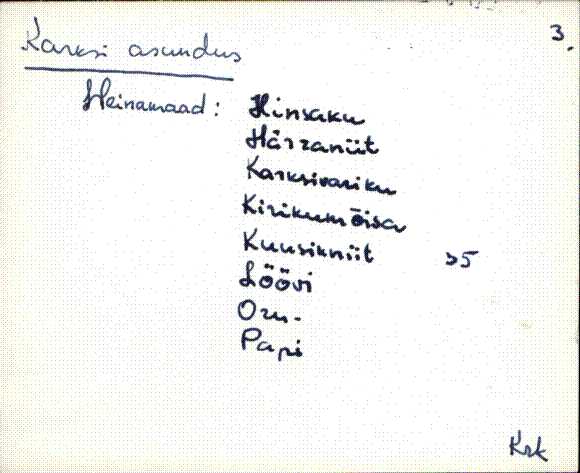 3.
Karksi asundus
Heinamaad: Hinsaku
Härraniit
Karksivariku
Kirikumõisa
Kuusikniit >5
Löövi
Oru-
Papi
Krk